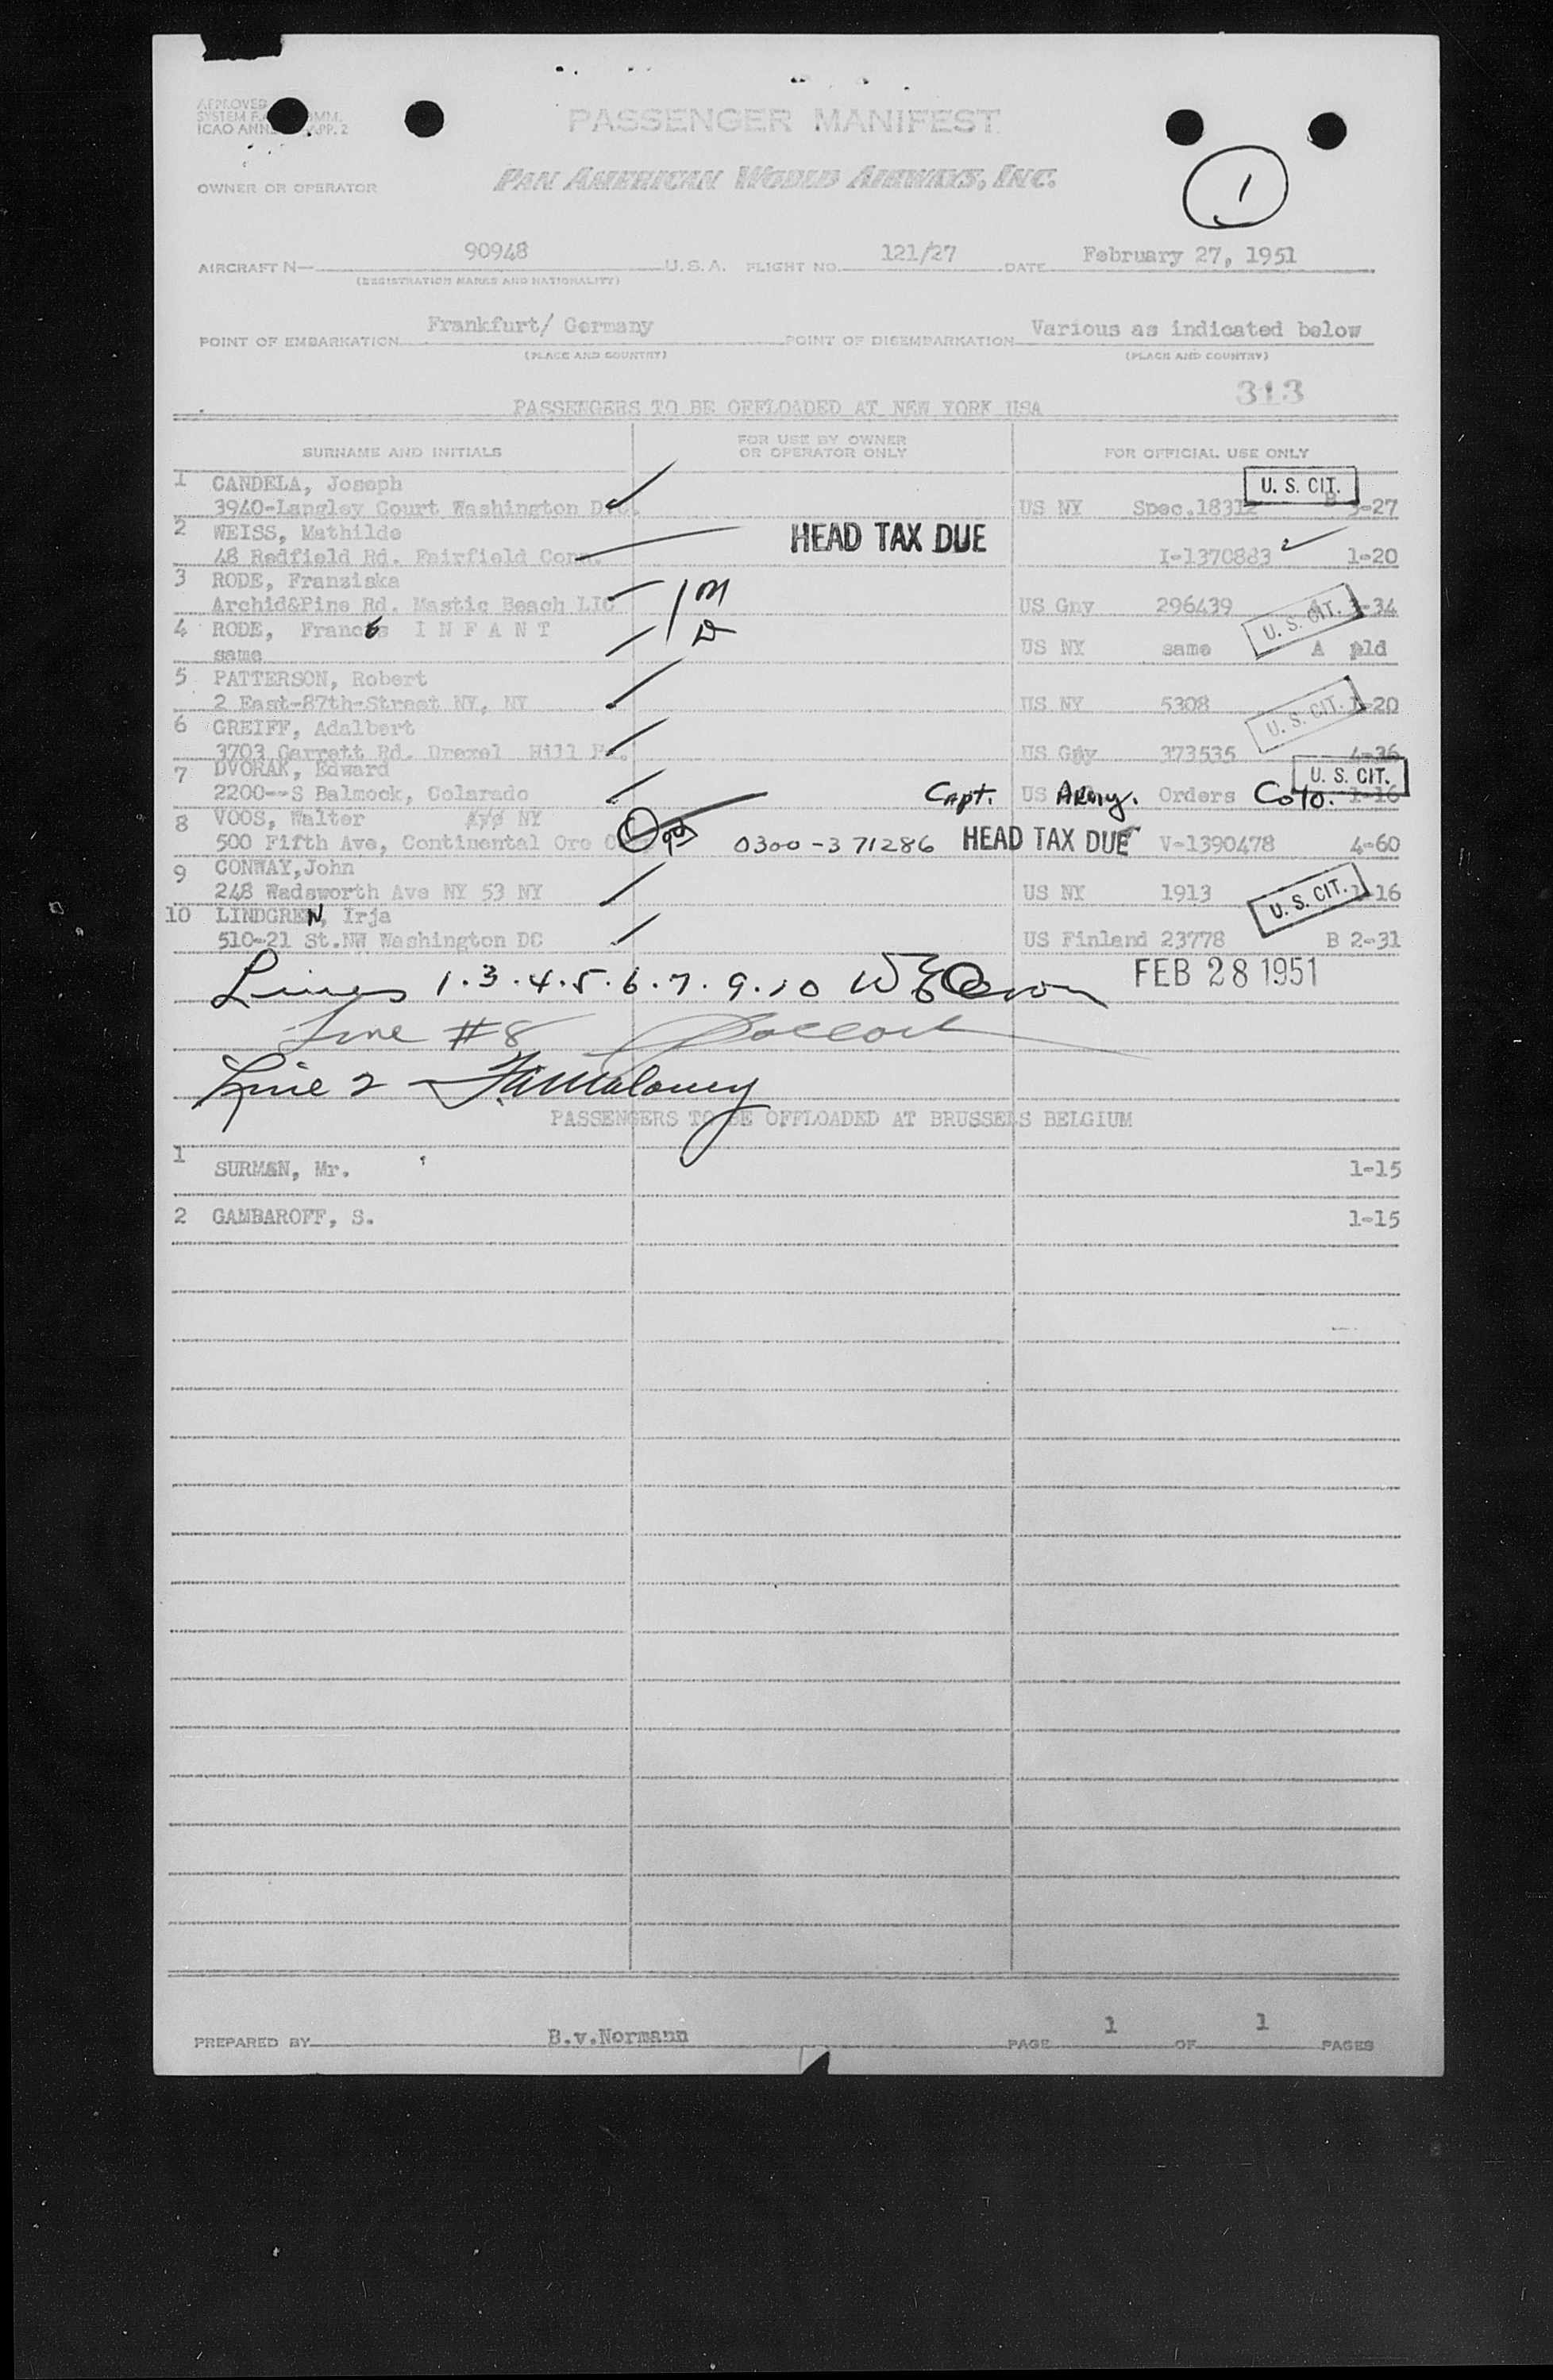 APPROVED
SYSTEM F. COMM.
ICAO ANN. APP. 2
PASSENGER MANIFEST
OWNER OR OPERATOR PAN AMERICAN WORLD AIRWAYS, INC.
1
AIRCRAFT N— 90948 U.S.A. FLIGHT NO. 121/27 DATE February 27, 1951
(REGISTRATION MARKS AND NATIONALITY)
POINT OF EMBARKATION Frankfurt/ Germany POINT OF DISEMBARKATION Various as indicated below
(PLACE AND COUNTRY) (PLACE AND COUNTRY)
313
PASSENGERS TO BE OFFLOADED AT NEW YORK USA
SURNAME AND INITIALS FOR USE BY OWNER OR OPERATOR ONLY FOR OFFICIAL USE ONLY
1 CANDELA, Joseph U. S. CIT.
3940-Langley Court Washington D.C. US NY Spec.18312 B 3-27
2 WEISS, Mathilde HEAD TAX DUE
48 Redfield Rd. Fairfield Conn. I-1370883 1-20
3 RODE, Franziska M
Archid&Pine Rd. Mastic Beach LIC US Gny 296439 3-34
4 RODE, Frances I N F A N T U. S. CIT.
same US NY same A pld
5 PATTERSON, Robert
2 East-87th-Street NY, NY US NY 5308 1-20
6 GREIFF, Adalbert U. S. CIT.
3703 Garratt Rd. Drexel Hill Pa. US Gny 373535 4-36
7 DVORAK, Edward U. S. CIT.
2200--S Balmock, Colarado Capt. US Army. Orders Colo. 1-16
8 VOOS, Walter NY
500 Fifth Ave, Continental Ore C 0300-371286 HEAD TAX DUE V-1390478 4-60
9 CONWAY,John
248 Wadsworth Ave NY 53 NY US NY 1913 U. S. CIT. 1-16
10 LINDGREN, Irja
510-21 St.NW Washington DC US Finland 23778 B 2-31
Lines 1.3.4.5.6.7.9.10 FEB 28 1951
Line #8
Line 2 Maloney
PASSENGERS TO BE OFFLOADED AT BRUSSELS BELGIUM
1 SURMAN, Mr. 1-15
2 GAMBAROFF, S. 1-15
PREPARED BY B.v.Normann PAGE 1 OF 1 PAGES